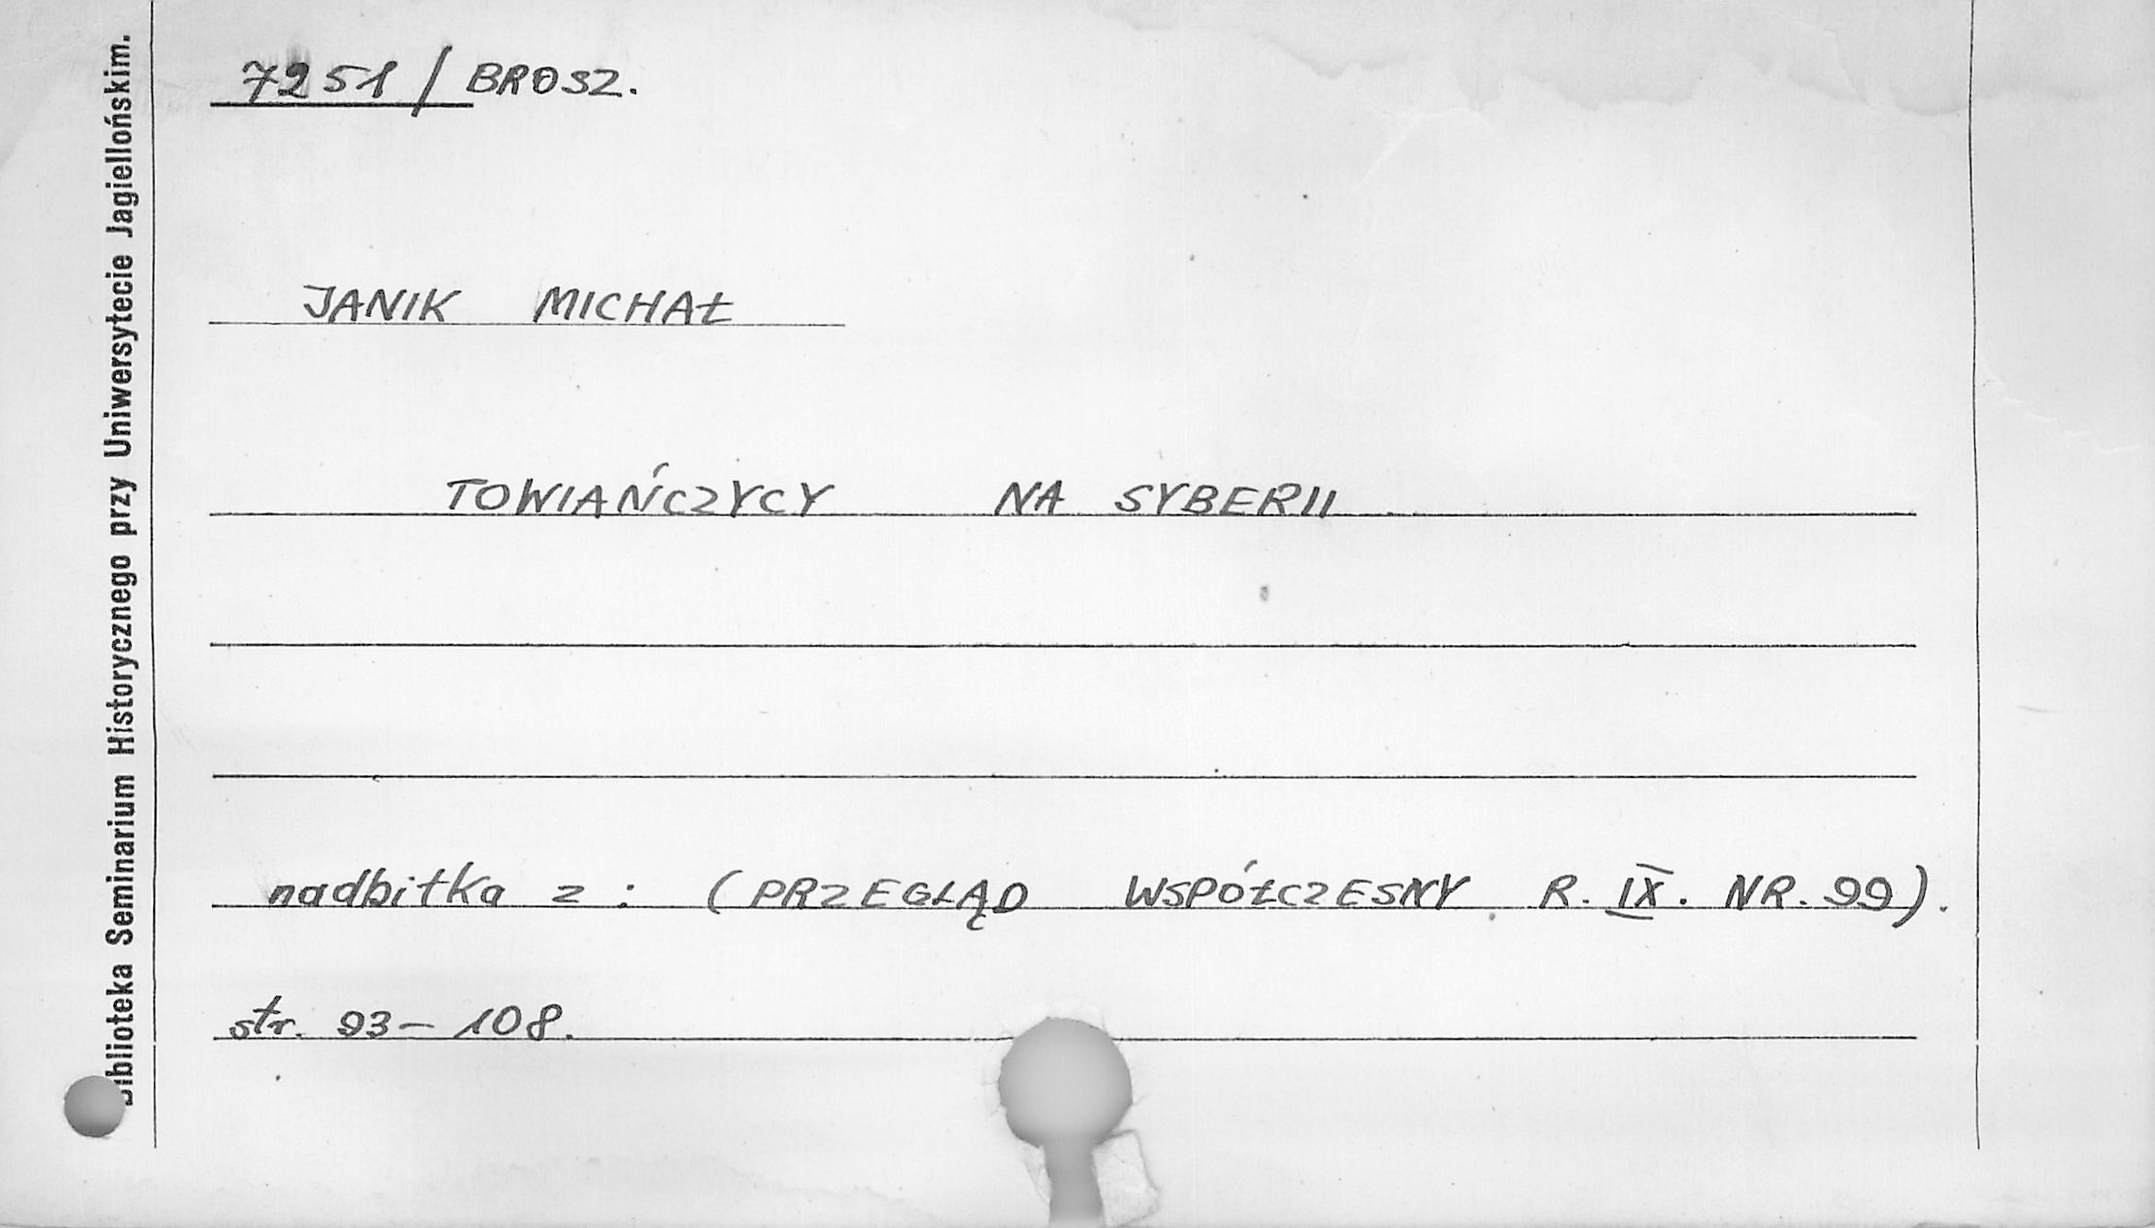 7251 / BROSZ.
JANIK MICHAŁ
TOWIAŃCZYCY NA SYBERII
nadbitka z : (PRZEGLĄD WSPÓŁCZESNY R. IX. NR. 99).
str. 93 – 108.
Biblioteka Seminarium Historycznego przy Uniwersytecie Jagiellońskim.